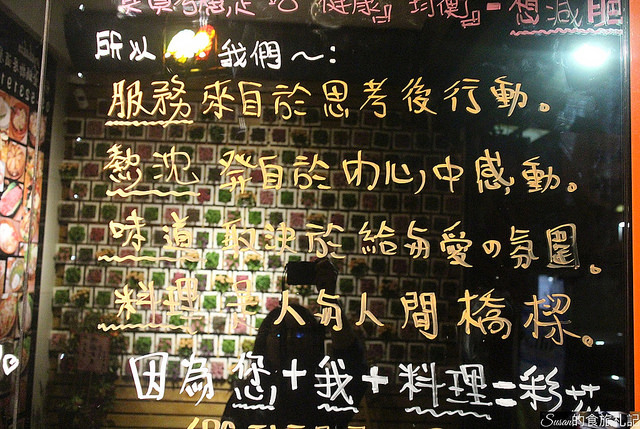 健康』均衡』-想減肥
所以 我們~:
服務來自於思考後行動。
熱忱發自於內心中感動。
味道取決於給与愛の氛圍。
料理是人与人間橋樑。
因為您+我+料理=彩
Susan的食旅札記